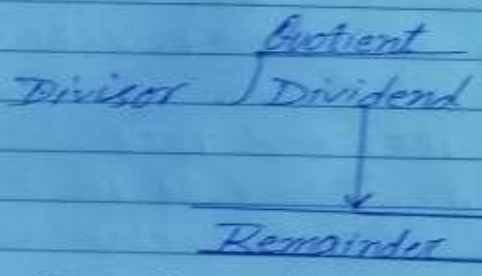 Quotient
Divisor Dividend
Remainder